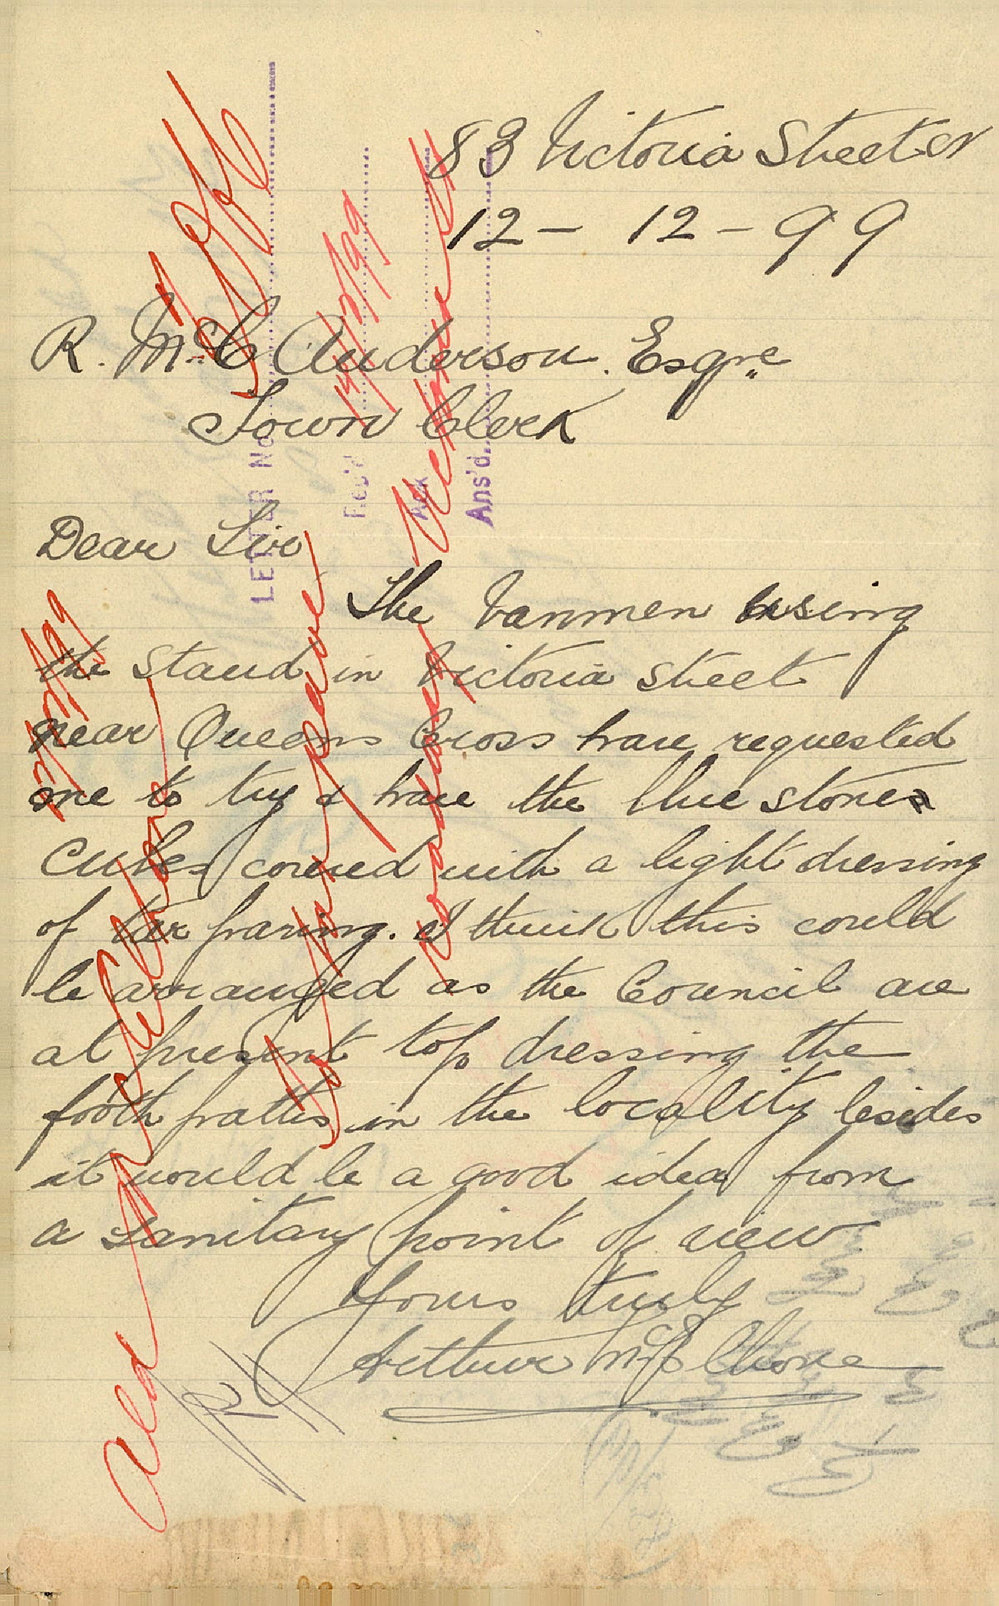 83 Victoria Street
12 - 12 - 99
R. McC Anderson. Esqre
Town Clerk
Dear Sir
The Vanmen using
the stand in Victoria Street
near Queens Cross have requested
me to try & have the blue stone
cubes covered with a light dressing
of tar paving. I think this could
be arranged as the Council are
at present top dressing the
footh paths in the locality besides
it would be a good idea from
a sanitary point of view
Yours truly
Arthur McElhone
LETTER No.
Rec'd
14/12/99
Ack
Ans'd.
Ald McElhone
to tar pave
woodwork Victoria St